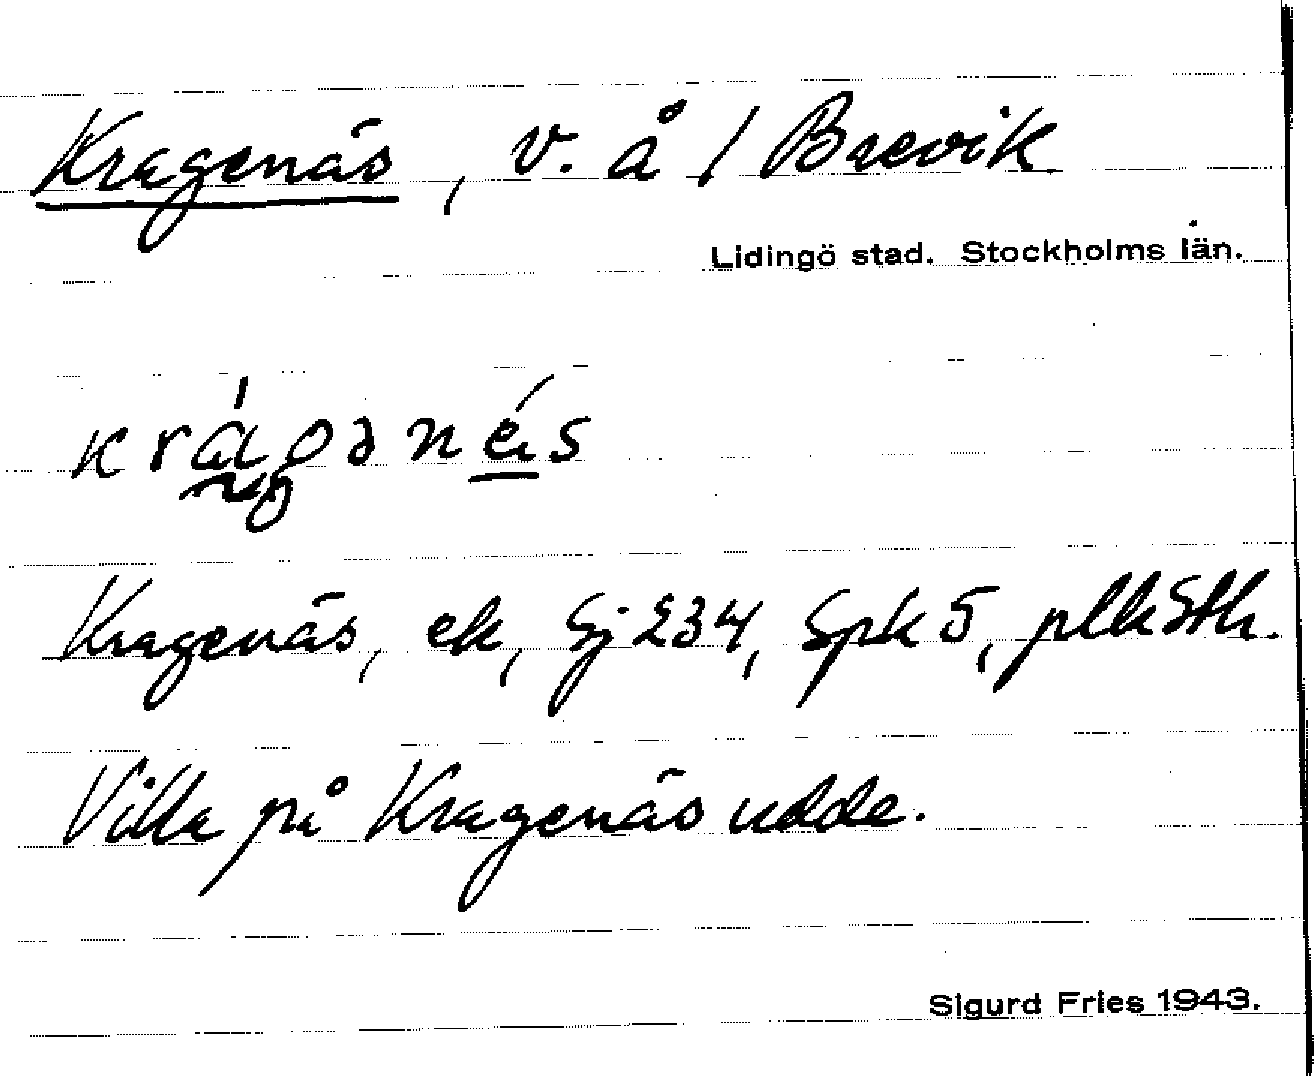 Kragenäs, v. å / Brevik
Lidingö stad. Stockholms län.
krágənä́s
Kragenäs, ek, Sj 234, Spk 5, plk Sth.
Villa på Kragenäs udde.
Sigurd Fries 1943.